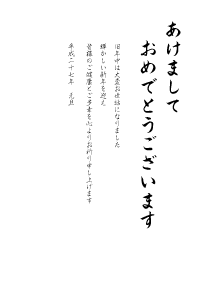 あけまして
おめでとうございます
旧年中は大変お世話になりました
輝かしい新年を迎え
皆様のご健康とご多幸を心よりお祈り申し上げます
平成二十七年　元旦